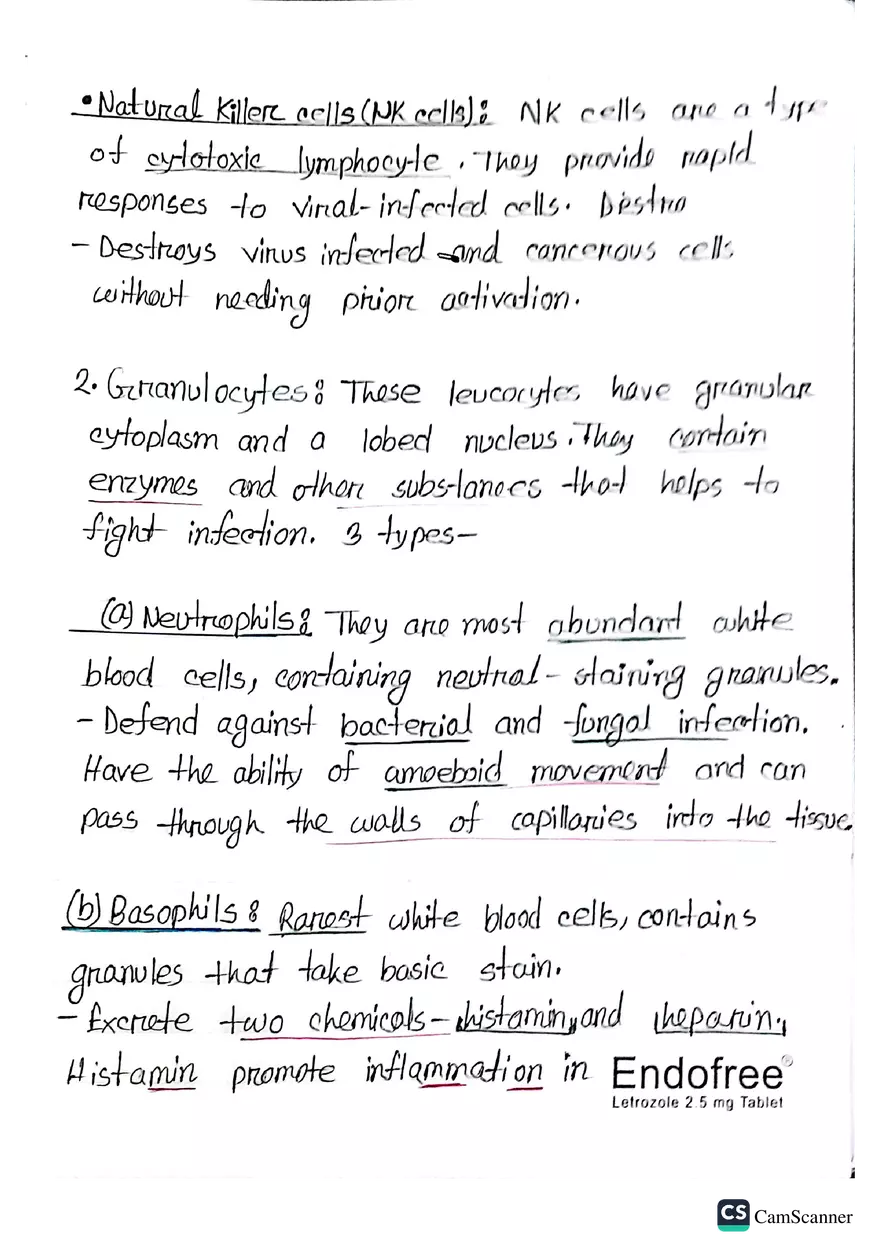 • Natural Killer cells (NK cells): NK cells are a type
of cytotoxic lymphocyte. They provide rapid
responses to viral-infected cells. Destro
- Destroys virus infected and cancerous cells
without needing prior activation.
2. Granulocytes: These leucocytes have granular
cytoplasm and a lobed nucleus. They contain
enzymes and other substances that helps to
fight infection. 3 types-
(a) Neutrophils: They are most abundant white
blood cells, containing neutral-staining granules.
- Defend against bacterial and fungal infection.
Have the ability of amoeboid movement and can
pass through the walls of capillaries into the tissue.
(b) Basophils: Rarest white blood cells, contains
granules that take basic stain.
- Excrete two chemicals - histamin, and heparin.
Histamin promote inflammation in
Endofree®
Letrozole 2.5 mg Tablet
CS CamScanner